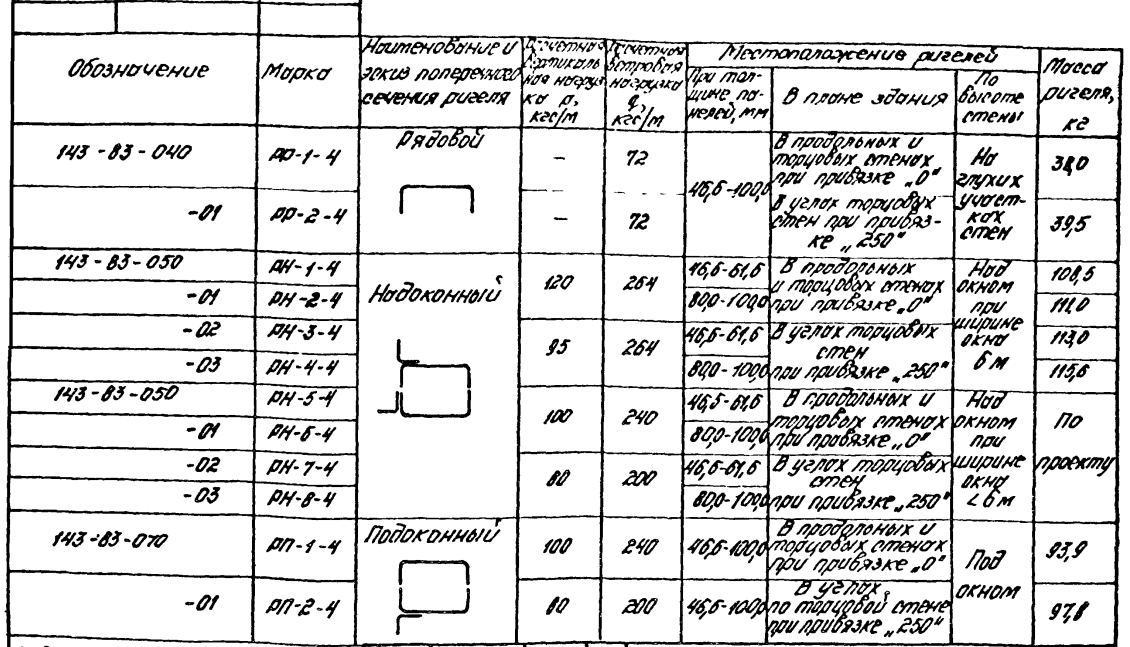 Обозначение
Марка
Наименование и
эскиз поперечного
сечения ригеля
Расчетная
вертикаль
ная нагруз
ка р,
кгс/м
Расчетная
ветровая
нагрузка
q,
кгс/м
Местоположение ригелей
При тол-
щине па-
нелей, мм
В плане здания
По
высоте
стены
Масса
ригеля,
кг
143-83-040
РР-1-4
Рядовой
—
72
46,6-100,0
В продольных и
торцовых стенах
при привязке „0"
На
глухих
участ-
ках
стен
38,0
-01
РР-2-4
—
72
В углах торцовых
стен при привяз-
ке „250"
39,5
143-83-050
РН-1-4
Надоконный
120
264
46,6-61,6
В продольных
и торцовых стенах
при привязке „0"
Над
окном
при
ширине
окна
6 м
108,5
-01
РН-2-4
80,0-100,0
111,0
-02
РН-3-4
95
264
46,6-61,6
В углах торцовых
стен
при привязке „250"
113,0
-03
РН-4-4
80,0-100,0
115,6
143-83-050
РН-5-4
100
240
46,6-61,6
В продольных и
торцовых стенах
при привязке „0"
Над
окном
при
ширине
окна
<6 м
По
проекту
-01
РН-6-4
80,0-100,0
-02
РН-7-4
80
200
46,6-61,6
В углах торцовых
стен
при привязке „250"
-03
РН-8-4
80,0-100,0
143-83-070
РП-1-4
Подоконный
100
240
46,6-100,0
В продольных и
торцовых стенах
при привязке „0"
Под
окном
93,9
-01
РП-2-4
80
200
46,6-100,0
В углах,
по торцовой стене
при привязке „250"
97,8